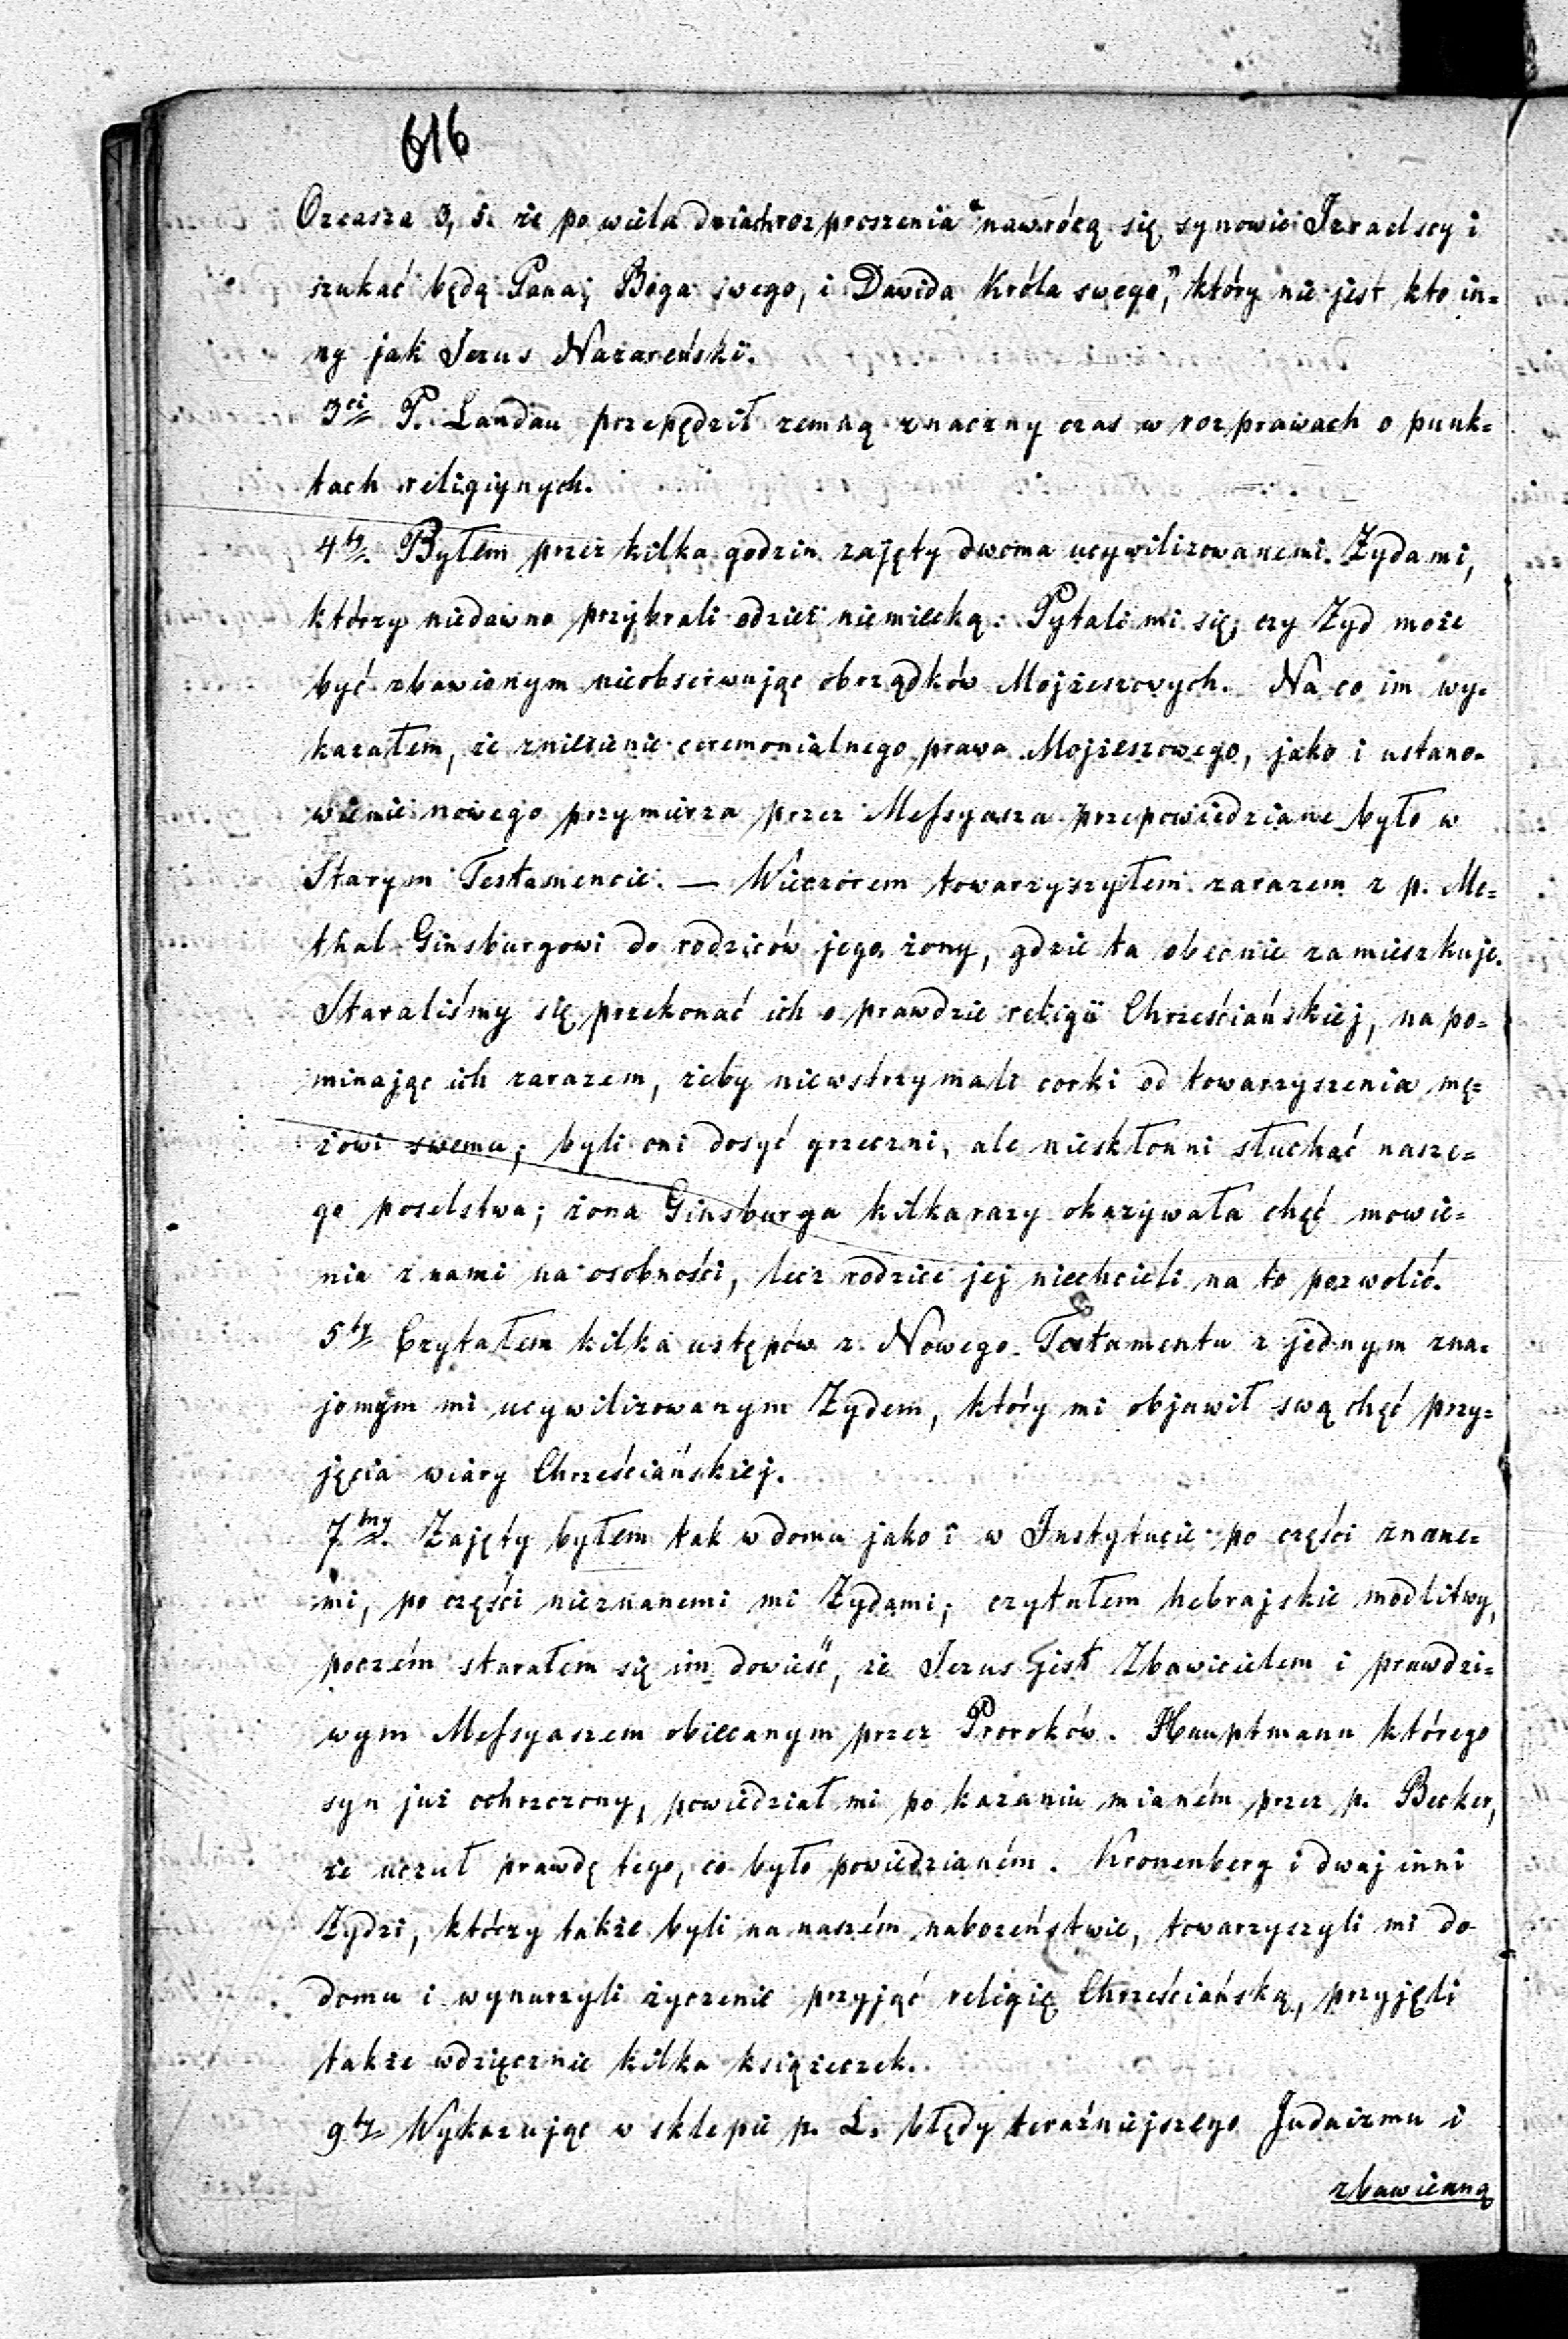 616
Ozeasza 3, 5. że po wielu dniach rozproszenia "nawrócą się synowie Izraelscy i
szukać będą Pana, Boga swego, i Dawida Króla swego," który nie jest kto in=
ny jak Jezus Nazareński.
3ci P. Landau przepędził zemną znaczny czas w rozprawach o punk=
tach religijnych.
4ty. Byłem przez kilka godzin zajęty dwoma ucywilizowanemi Żydami,
którzy niedawno przybrali odzież niemiecką. Pytali mi się, czy Żyd może
być zbawionym nieobserwując obrządków Mojżeszowych. Na co im wy=
kazałem, że zniesienie ceremonialnego prawa Mojżeszowego, jako i ustano=
wienie nowego przymierza przez Messyasza przepowiedziane było w
Starym Testamencie. — Wieczorem towarzyszyłem zarazem z p. Me=
thal Ginsburgowi do rodziców jego żony, gdzie ta obecnie zamieszkuje.
Staraliśmy się przekonać ich o prawdzie religii Chrześciańskiej, napo=
minając ich zarazem, żeby niewstrzymali corki od towarzyszenia mę=
żowi swemu; byli oni dosyć grzeczni, ale niesktonni słuchać nasze=
go poselstwa; żona Ginsburga kilka razy okazywała chęć mowie=
nia z nami na osobności, lecz rodzice jej niechcieli na to pozwolić.
5ty Czytałem kilka ustępów z Nowego Testamentu z jednym zna=
jomym mi ucywilizowanym Żydem, który mi objawił swą chęć przy=
jęcia wiary Chrześciańskiej.
7my. Zajęty byłem tak w domu jako i w Instytucie po części znane=
mi, po części nieznanemi mi Żydami; czytałem hebrajskie modlitwy,
poczém starałem się im dowieść, że Jezus jest Zbawicielem i prawdzi=
wym Messyaszem obiecanym przez Proroków. Hauptmann którego
syn już ochrzczony, powiedział mi po kazaniu mianém przez p. Becker,
że uczuł prawdę tego, co było powiedzianém. Kronenberg i dwaj inni
Żydzi, którzy także byli na naszém nabożeństwie, towarzyszyli mi do
domu i wynurzyli życzenie przyjąć religię Chrześciańską, przyjęli
także wdzięcznie kilka książeczek.
9ty Wykazując w sklepie p. L. błędy teraźniejszego Judaizmu i
zbawienną